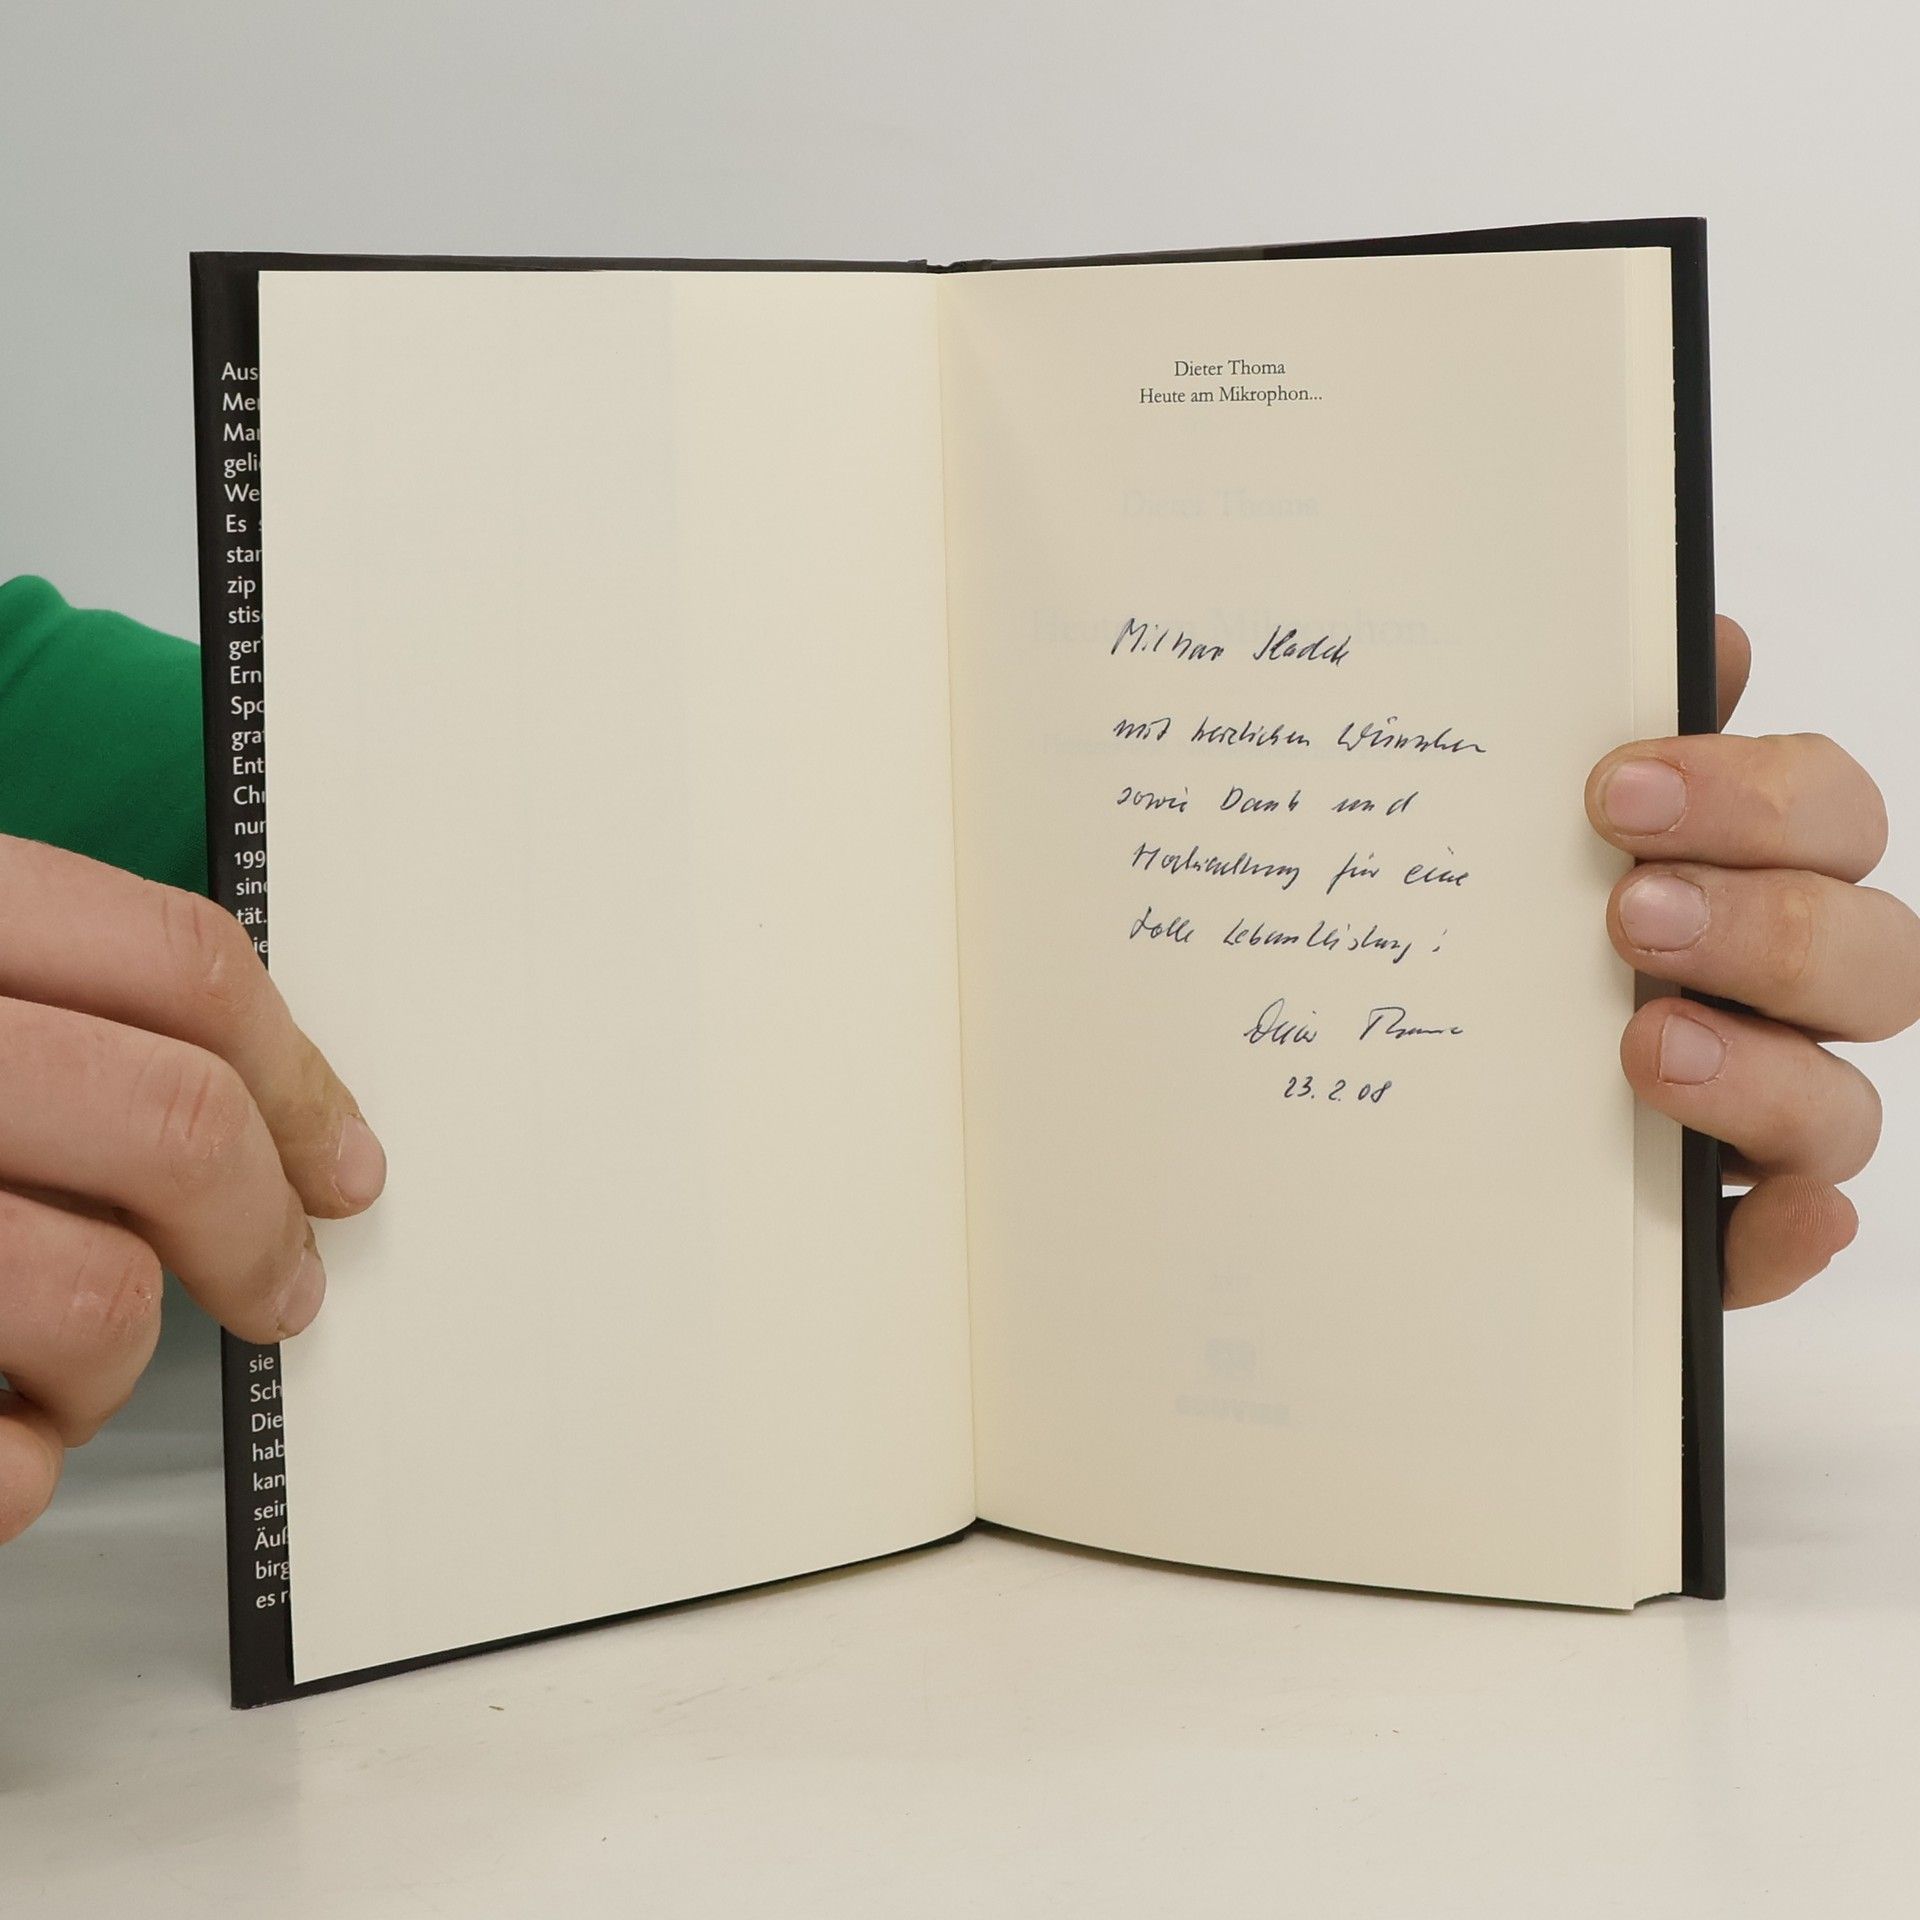 Aus
Me
Mar
geli
We
Es
star
zip
stis
ger
Ern
Spo
gra
Ent
Chr
nur
199
sind
tät.
ie
sie
Sch
Die
hab
kan
sein
Äuß
birg
es r
Dieter Thoma
Heute am Mikrophon...
Dieter Thoma
Heute am Mikrophon...
Milan Sladek
mit herzlichen Wünschen
sowie Dank und
Hochachtung für eine
tolle Lebensleistung!
Dieter Thoma
23. 2. 08
BOUVIER